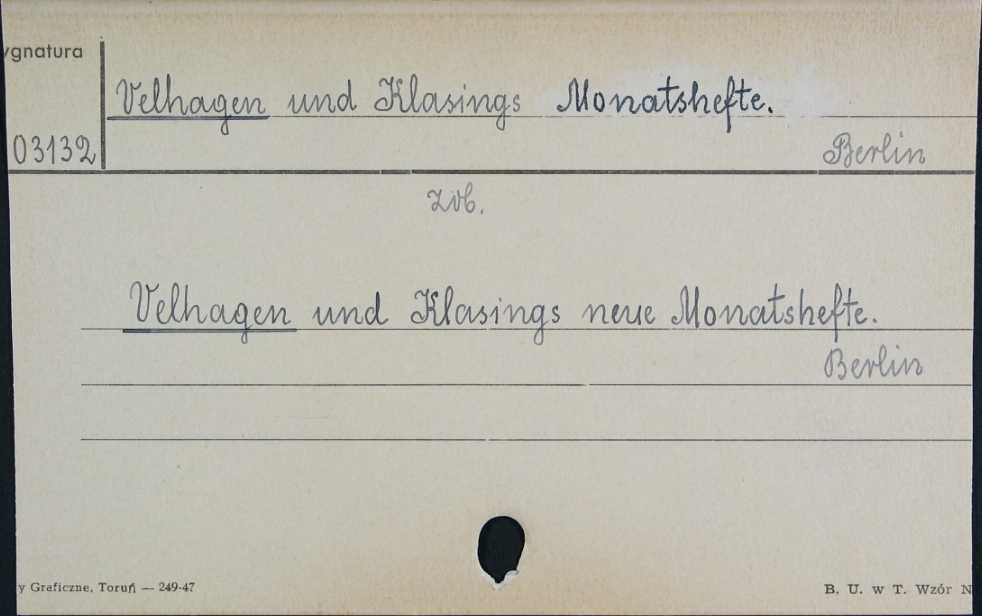 ygnatura
Velhagen und Klasings Monatshefte.
03132
Berlin
zob.
Velhagen und Klasings neue Monatshefte.
Berlin
y Graficzne, Toruń — 249-47
B. U. w T. Wzór N